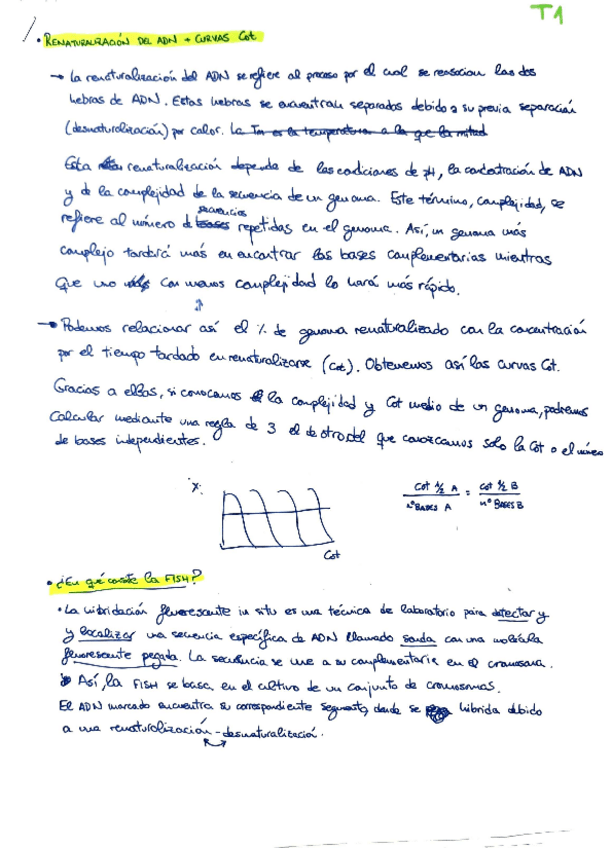 T1
• RENATURALIZACIÓN DEL ADN + CURVAS Cot
→ La renaturalización del ADN se refiere al proceso por el cual se reasocian las dos
hebras de ADN. Estas hebras se encuentran separadas debido a su previa separación
(desnaturalización) por calor. La Tm es la temperatura a la que la mitad
Esta renaturalización depende de las condiciones de pH, la concentración de ADN
y de la complejidad de la secuencia de un genoma. Este término, complejidad, se
refiere al número de bases secuencias repetidas en el genoma. Así, un genoma más
complejo tardará más en encontrar las bases complementarias mientras
que uno con menos complejidad lo hará más rápido.
→ Podemos relacionar así el % de genoma renaturalizado con la concentración
por el tiempo tardado en renaturalizarse (Cot). Obtenemos así las curvas Cot.
Gracias a ellas, si conocamos la complejidad y Cot medio de un genoma, podremos
calcular mediante una regla de 3 el de otro del que conozcamos solo la Cot o el número
de bases independientes.
%
Cot
Cot ½ A / nº BASES A = Cot ½ B / nº BASES B
• ¿En qué consiste la FISH?
• La hibridación fluorescente in situ es una técnica de laboratorio para detectar y
y localizar una secuencia específica de ADN llamado sonda con una molécula
fluorescente pegada. La secuencia se une a su complementaria en el cromosoma.
Así, la FISH se basa, en el cultivo de un conjunto de cromosomas.
El ADN marcado encuentra su correspondiente segmento, donde se hibrida debido
a una renaturalización - desnaturalización.